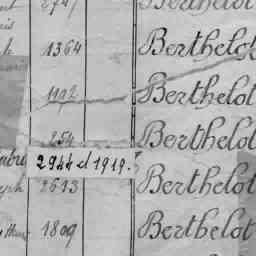 Berthelot
1364 Berthelot
1192 Berthelot
254 Berthelot
2944 et 1919.
2613 Berthelot
1809 Berthelot